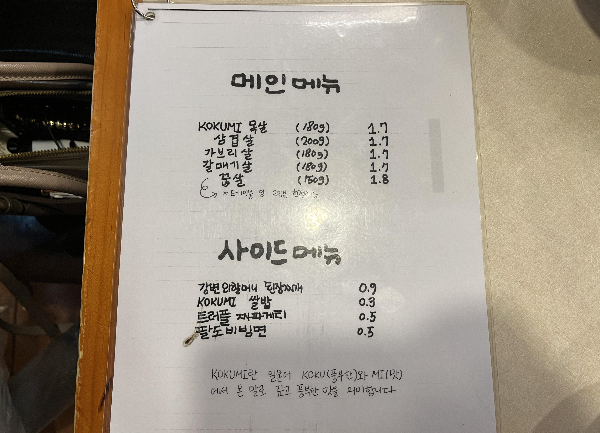 메인메뉴
KOKUMI 목살 (180g) 1.7
삼겹살 (200g) 1.7
가브리살 (180g) 1.7
갈매기살 (180g) 1.7
꼽살 (150g) 1.8
사이드메뉴
강변외할머니 된장찌개 0.9
KOKUMI 쌀밥 0.3
트러플 짜파게티 0.5
팔도비빔면 0.5
KOKUMI란 일본어 KOKU(풍부한)와 MI(맛)
에서 온 말로 깊고 풍부한 맛을 의미합니다